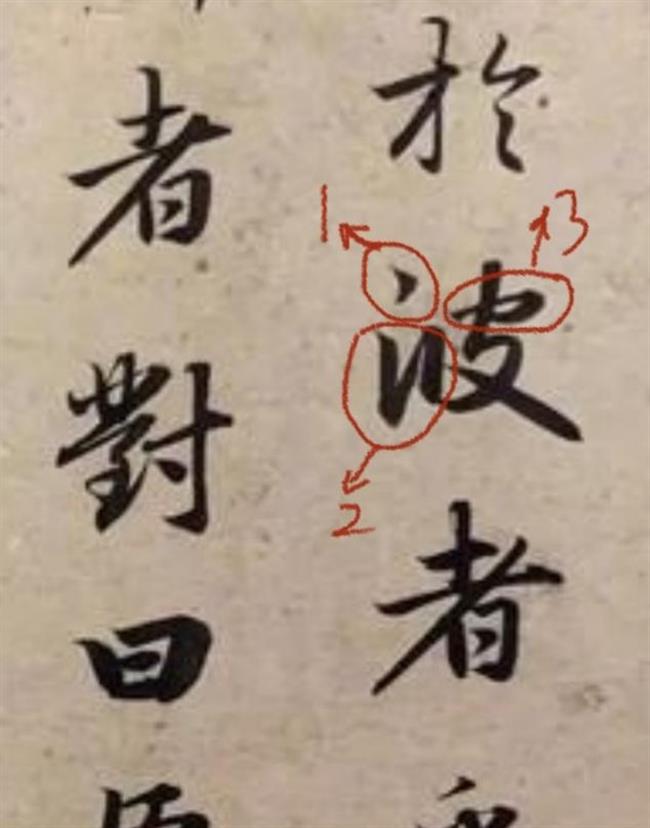 於波者
者對曰
1
2
3